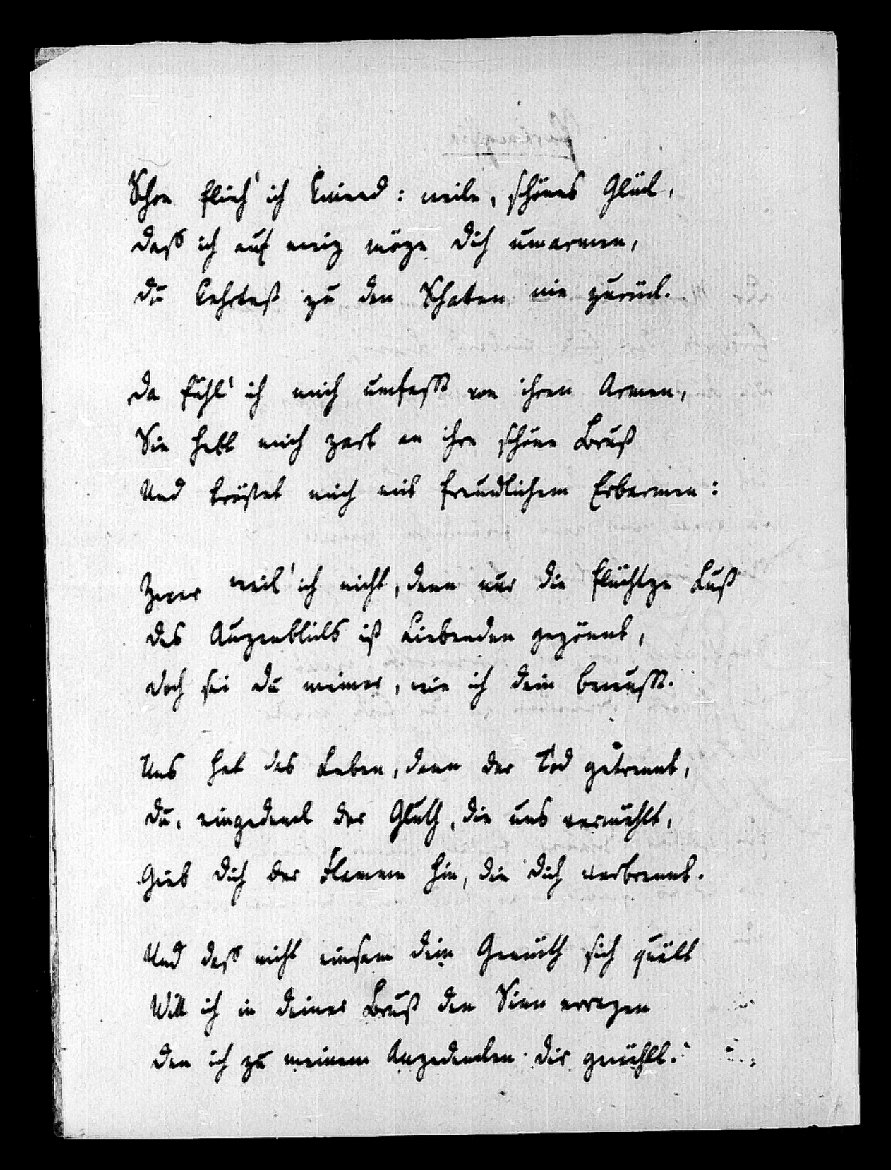 Schon flieh' ich knieend: weile, schönes Glück,
Dass ich auf ewig möge dich umarmen,
Du kehrtest zu den Schaten nie zurück.
Da fühl' ich mich umfasst von ihren Armen,
Sie hebt mich zart an ihre schöne Brust
Und tröstet mich mit freundlichem Erbarmen:
Zwar weil' ich nicht, denn nur die flüchtge Lust
Des Augenblicks ist Liebenden gegönnt,
Doch sei du meiner, wie ich dein bewusst.
Uns hat das Leben, dann der Tod getrennt,
Du, eingedenk der Gluth, die uns vermählt,
Gieb dich der Flamme hin, die dich verbrennt.
Und dass nicht einsam dein Gemüth sich quält
Will ich in deiner Brust den Sinn erregen
Den ich zu meinem Angedenken dir gewählt.